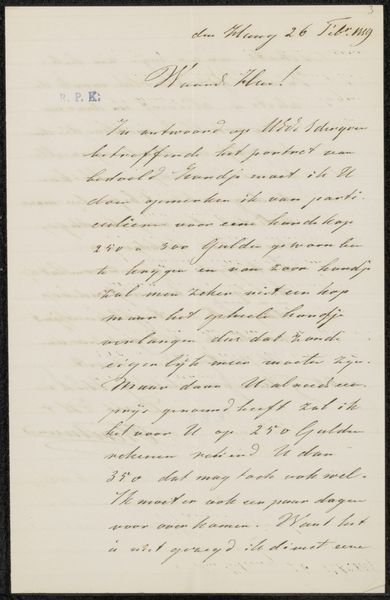 3
den Haag 26 Febr. 1889
Waarde Heer!
R. P. K.
In antwoord op UEd.
betreffende het portret van
bedoeld hondje moet ik U
doen opmerken ik van parti
culieren voor eene hondekop
250 a 300 Gulden gewoon ben
te krijgen en van zoon hondje
zal men zeker niet een kop
maar het geheele hondje
verlangen dus dat zoude
eigenlijk meer moeten zijn.
Maar daar U al reeds een
prijs genoemd heeft zal ik
het voor U op 250 Gulden
rekenen rekend U dan
350 dat mag toch ook wel.
Ik moet er ook een paar dagen
voor over komen. Want het
is niet gezegd ik direct eene